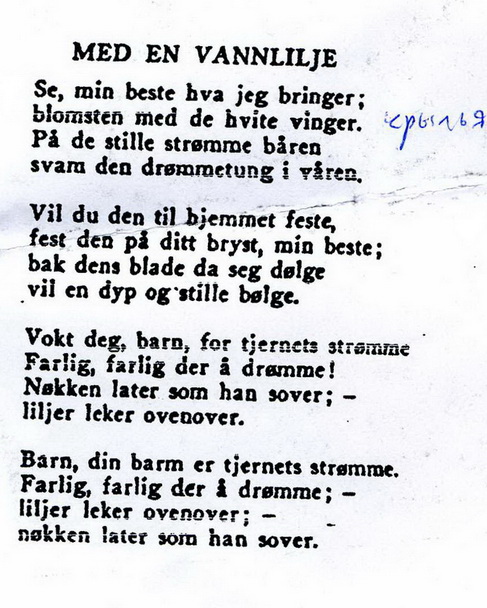 MED EN VANNLILJE
Se, min beste hva jeg bringer;
blomsten med de hvite vinger.
På de stille strømme båren
svam den drømmetung i våren.
Vil du den til hjemmet feste,
fest den på ditt bryst, min beste;
bak dens blade da seg dølge
vil en dyp og stille bølge.
Vokt deg, barn, for tjernets strømme
Farlig, farlig der å drømme!
Nøkken later som han sover; –
liljer leker ovenover.
Barn, din barm er tjernets strømme.
Farlig, farlig der å drømme; –
liljer leker ovenover; –
nøkken later som han sover.